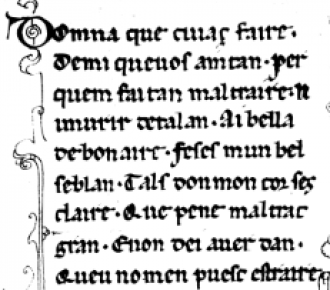 Domna que cuiaç faire.
Demi queuos am tan. Per
quem fai tan mal traire. N
i murir de talan. Ai bella
de bon aire. feses mun bel
seblan. Tals don mon cor ses
claire. Que pene mal trac
gran. E non dei auer dan.
Queu nomen puesc estraire